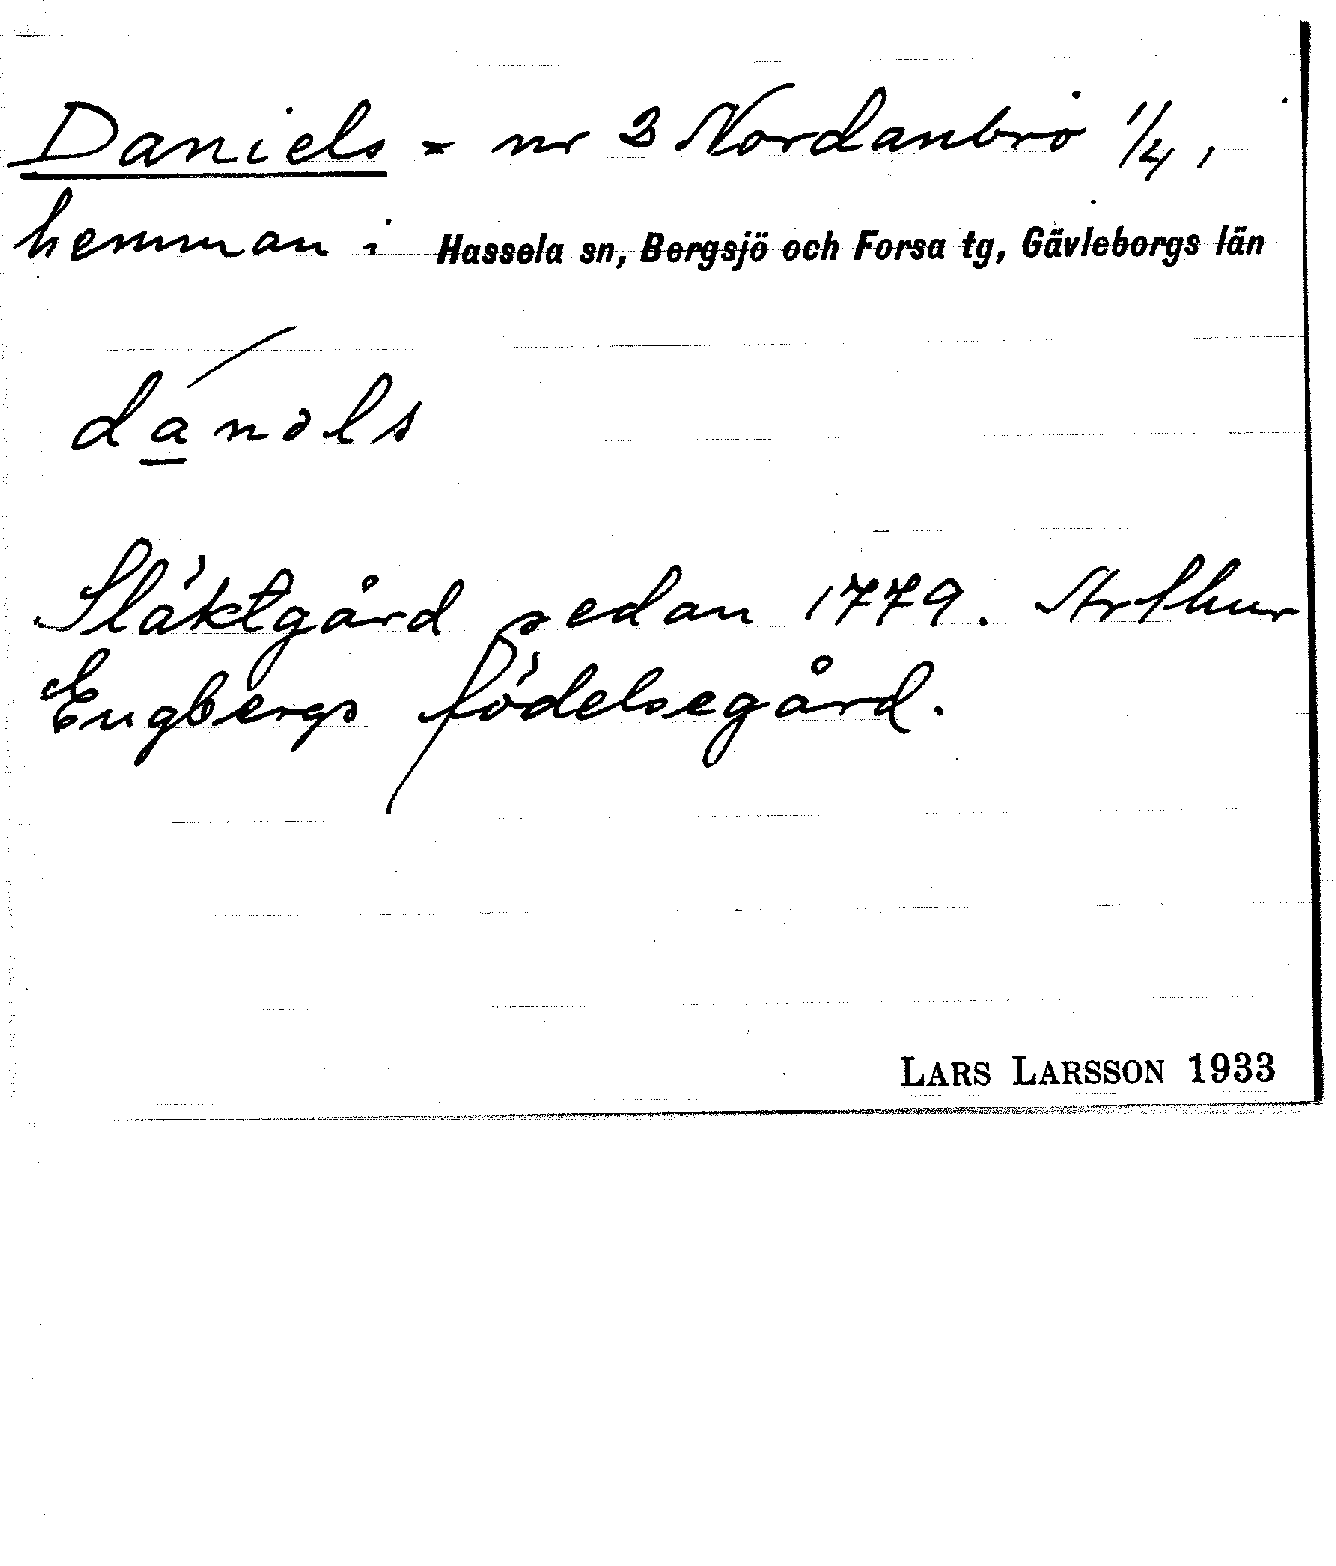 Daniels = nr 3 Nordanbro 1/4,
hemman i Hassela sn, Bergsjö och Forsa tg, Gävleborgs län
dánəls
Släktgård sedan 1779. Arthur
Engbergs födelsegård.
LARS LARSSON 1933